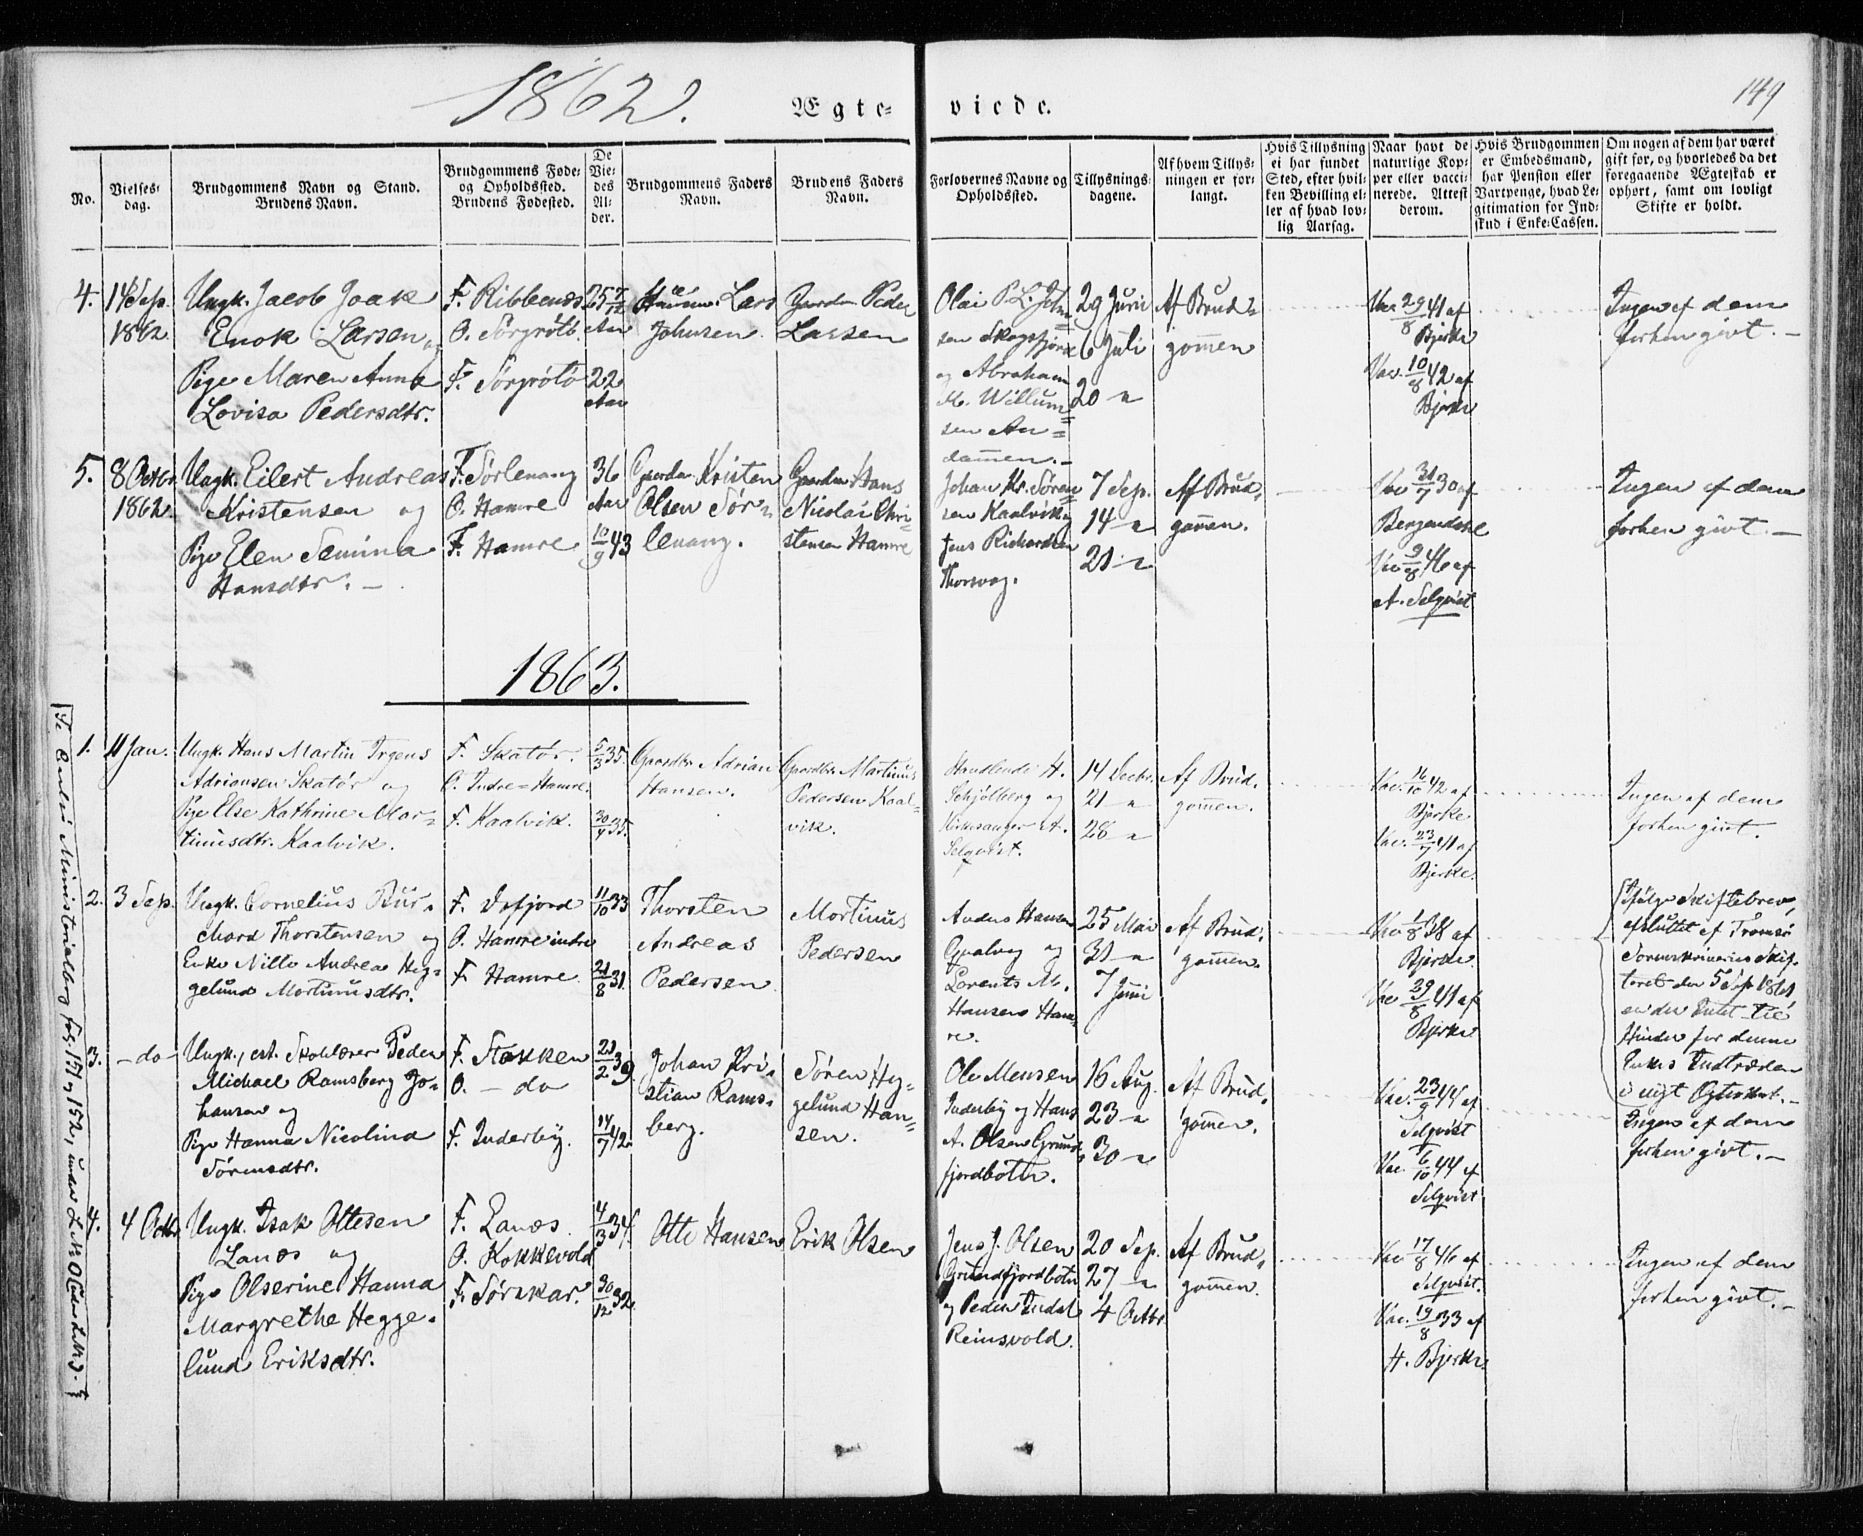 1862.
149
Ægte-
viede.
No.
Vielses-
dag.
Brudgommens Navn og Stand.
Brudens Navn.
Brudgommens Føde-
og Opholdssted.
Brudens Fødested.
De
Vie-
des
Al-
der.
Brudgommens Faders
Navn.
Brudens Faders
Navn.
Forlovernes Navne og
Opholdssted.
Tillysnings-
dagene.
Af hvem Tillys-
ningen er for-
langt.
Hvis Tillysning
ei har fundet
Sted, efter hvil-
ken Bevilling el-
ler af hvad lov-
lig Aarsag.
Naar havt de
naturlige Kop-
per eller vacci-
nerede. Attest
derom.
Hvis Brudgommen
er Embedsmand,
har Pension eller
Vartpenge, hvad Le-
gitimation for Ind-
skud i Enke-Cassen.
Om nogen af dem har været
gift før, og hvorledes da det
foregaaende Ægteskab er
ophørt, samt om lovligt
Skifte er holdt.
4.
14 Sep.
1862
Ungk. Jacob Joak
Enok Larsen og
Pige Maren Anna
Lovisa Pedersdtr.
F. Ribbenæs
O. Sørgrøtö.
F. Sørgrøtö
25 7/12
Aar
22
Aar
Lars
Johnsen
Gaardm Peder
Larsen
Olai P. L. John=
sen Skogsfjord
og Abraham
M. Willum=
sen An=
dammen.-
29 Juni
6 Juli
20 -"-
Af Brud=
gom̅en
Vac. 29/8 41 af
Bjerke
Vac. 10/8 42 af
Bjerke
Ingen af dem
forhen givt. -
5.
8 Octbr.
1862.
Ungk. Eilert Andreas
Kristensen og
Pige Elen Semina
Hansdtr. -
F. Sørlenang
O. Hamre
F. Hamre
36
Aar
10/9 43
Gaardm Kristen
Olsen Sør=
lenang.
Gaardm Hans
Nicolai Chri-
stensen Hamre
Johan Kr. Søren=
sen Kaalvik
Jens Richardsen
Thorsvag.
7 Sep.
14 -"-
21 -"-
Af Brud,
gom̅en.
Vac 31/7 30 af
Vac 9/8 46 af
A. Selqvist
Ingen af dem
forhen givt -
1863.
1.
11 Jan.
Ungk. Hans Martin Irgens
Adriansen Skatør og
Pige Else Kathrine Mar=
tinusdtr. Kaalvik.
F. Skatør.
O. Indre=Hamre.
F. Kaalvik.
5/3 35.
30/4 35.
Gaardbr. Adrian
Hansen.
Gaardbr. Martinus
Pedersen Kaal-
vik.
Handlende H.
Schjølberg og
Kirkesanger A.
Selqvist.
14 Decbr.
21 -"-
28 -"-
Af Brud,
gom̅en.
Vac. 16/10 42 af
Bjerke
Vac. 23/7 41 af
Bjerke
Ingen af dem
forhen givt.
2.
3 Sep.
Ungk. Cornelius Bur-
chard Thorstensen og
Enke Nille Andrea Heg-
gelund Mortinusdtr.
F. Isfjord
O. Hamre indre
F. Hamre
11/10 33
21/8 31.
Thorsten
Andreas
Pedersen
Mortinus
Pedersen
Anders Hansen
og
Lorents M.
Hansen Ham=
re.
25 Mai
31 -"-
7 Juni
Af Brud,
gom̅en.
Vac 1/8 38 af
Bjerke
Vac 29/8 41 af
Bjerke
Ifølge Skiftebrev,
afsluttet af Tromsø
Sorenskriveries Skif-
teret den 5 Sep 1861
er der Intet til
Hinder for denne
Enkes Indtræden
i nyt Egteskab. -
3.
- do -
Ungk., est. Skolelærer Peder
Michael Ramsberg Jo-
hansen og
Pige Hanna Nicolina
Sørensdtr.
F. Stokken
O. - do
F. Inderby.
21/2 39
14/7 42.
Johan Kri-
stian Rams-
berg.
Søren Hg-
gelund Han-
sen.
Ole Mensen
Inderby og Hans
A. Olsen Grund-
fjordbotn.
16 Aug.
23 -"-
30 -"-
Af Brud,
gom̅en.
Vac. 23/9 45 af
Selqvist
Vac. 6/10 44 af
Selqvist
Ingen af dem
forhen givt. -
4.
4 Octbr
Ungk. Isak Ottesen
Lanæs og
Pige Olserine Hanna
Margrethe Hegge-
lund Eriksdtr.
F. Lanæs.
O. Kokkevold
F. Sørskar.
4/3 34.
30/12 32.
Otte Hansen
Erik Olsen
Jens J. Olsen
Grundfjordbotn
og Peder Endal
Reinsvold.
20 Sep.
27 -"-
4 Octbr
Af Brud,
gom̅en.
Vac 17/8 46 af
Selqvist.
Vac. 19/8 33 af
H. Bjerke
Ingen af dem
forhen givt. -
Ministerialbog fol. 151 og 152, under